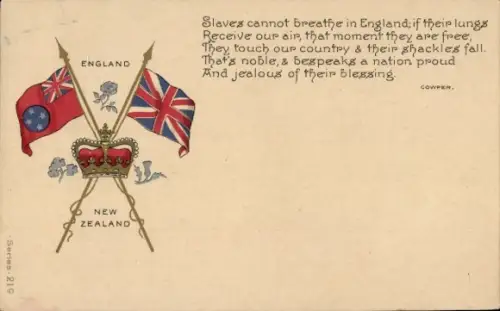 Slaves cannot breathe in England; if their lungs
Receive our air, that moment they are free,
They touch our country & their shackles fall.
That's noble, & bespeaks a nation proud
And jealous of their blessing.
COWPER.
ENGLAND
NEW
ZEALAND
Series. 219